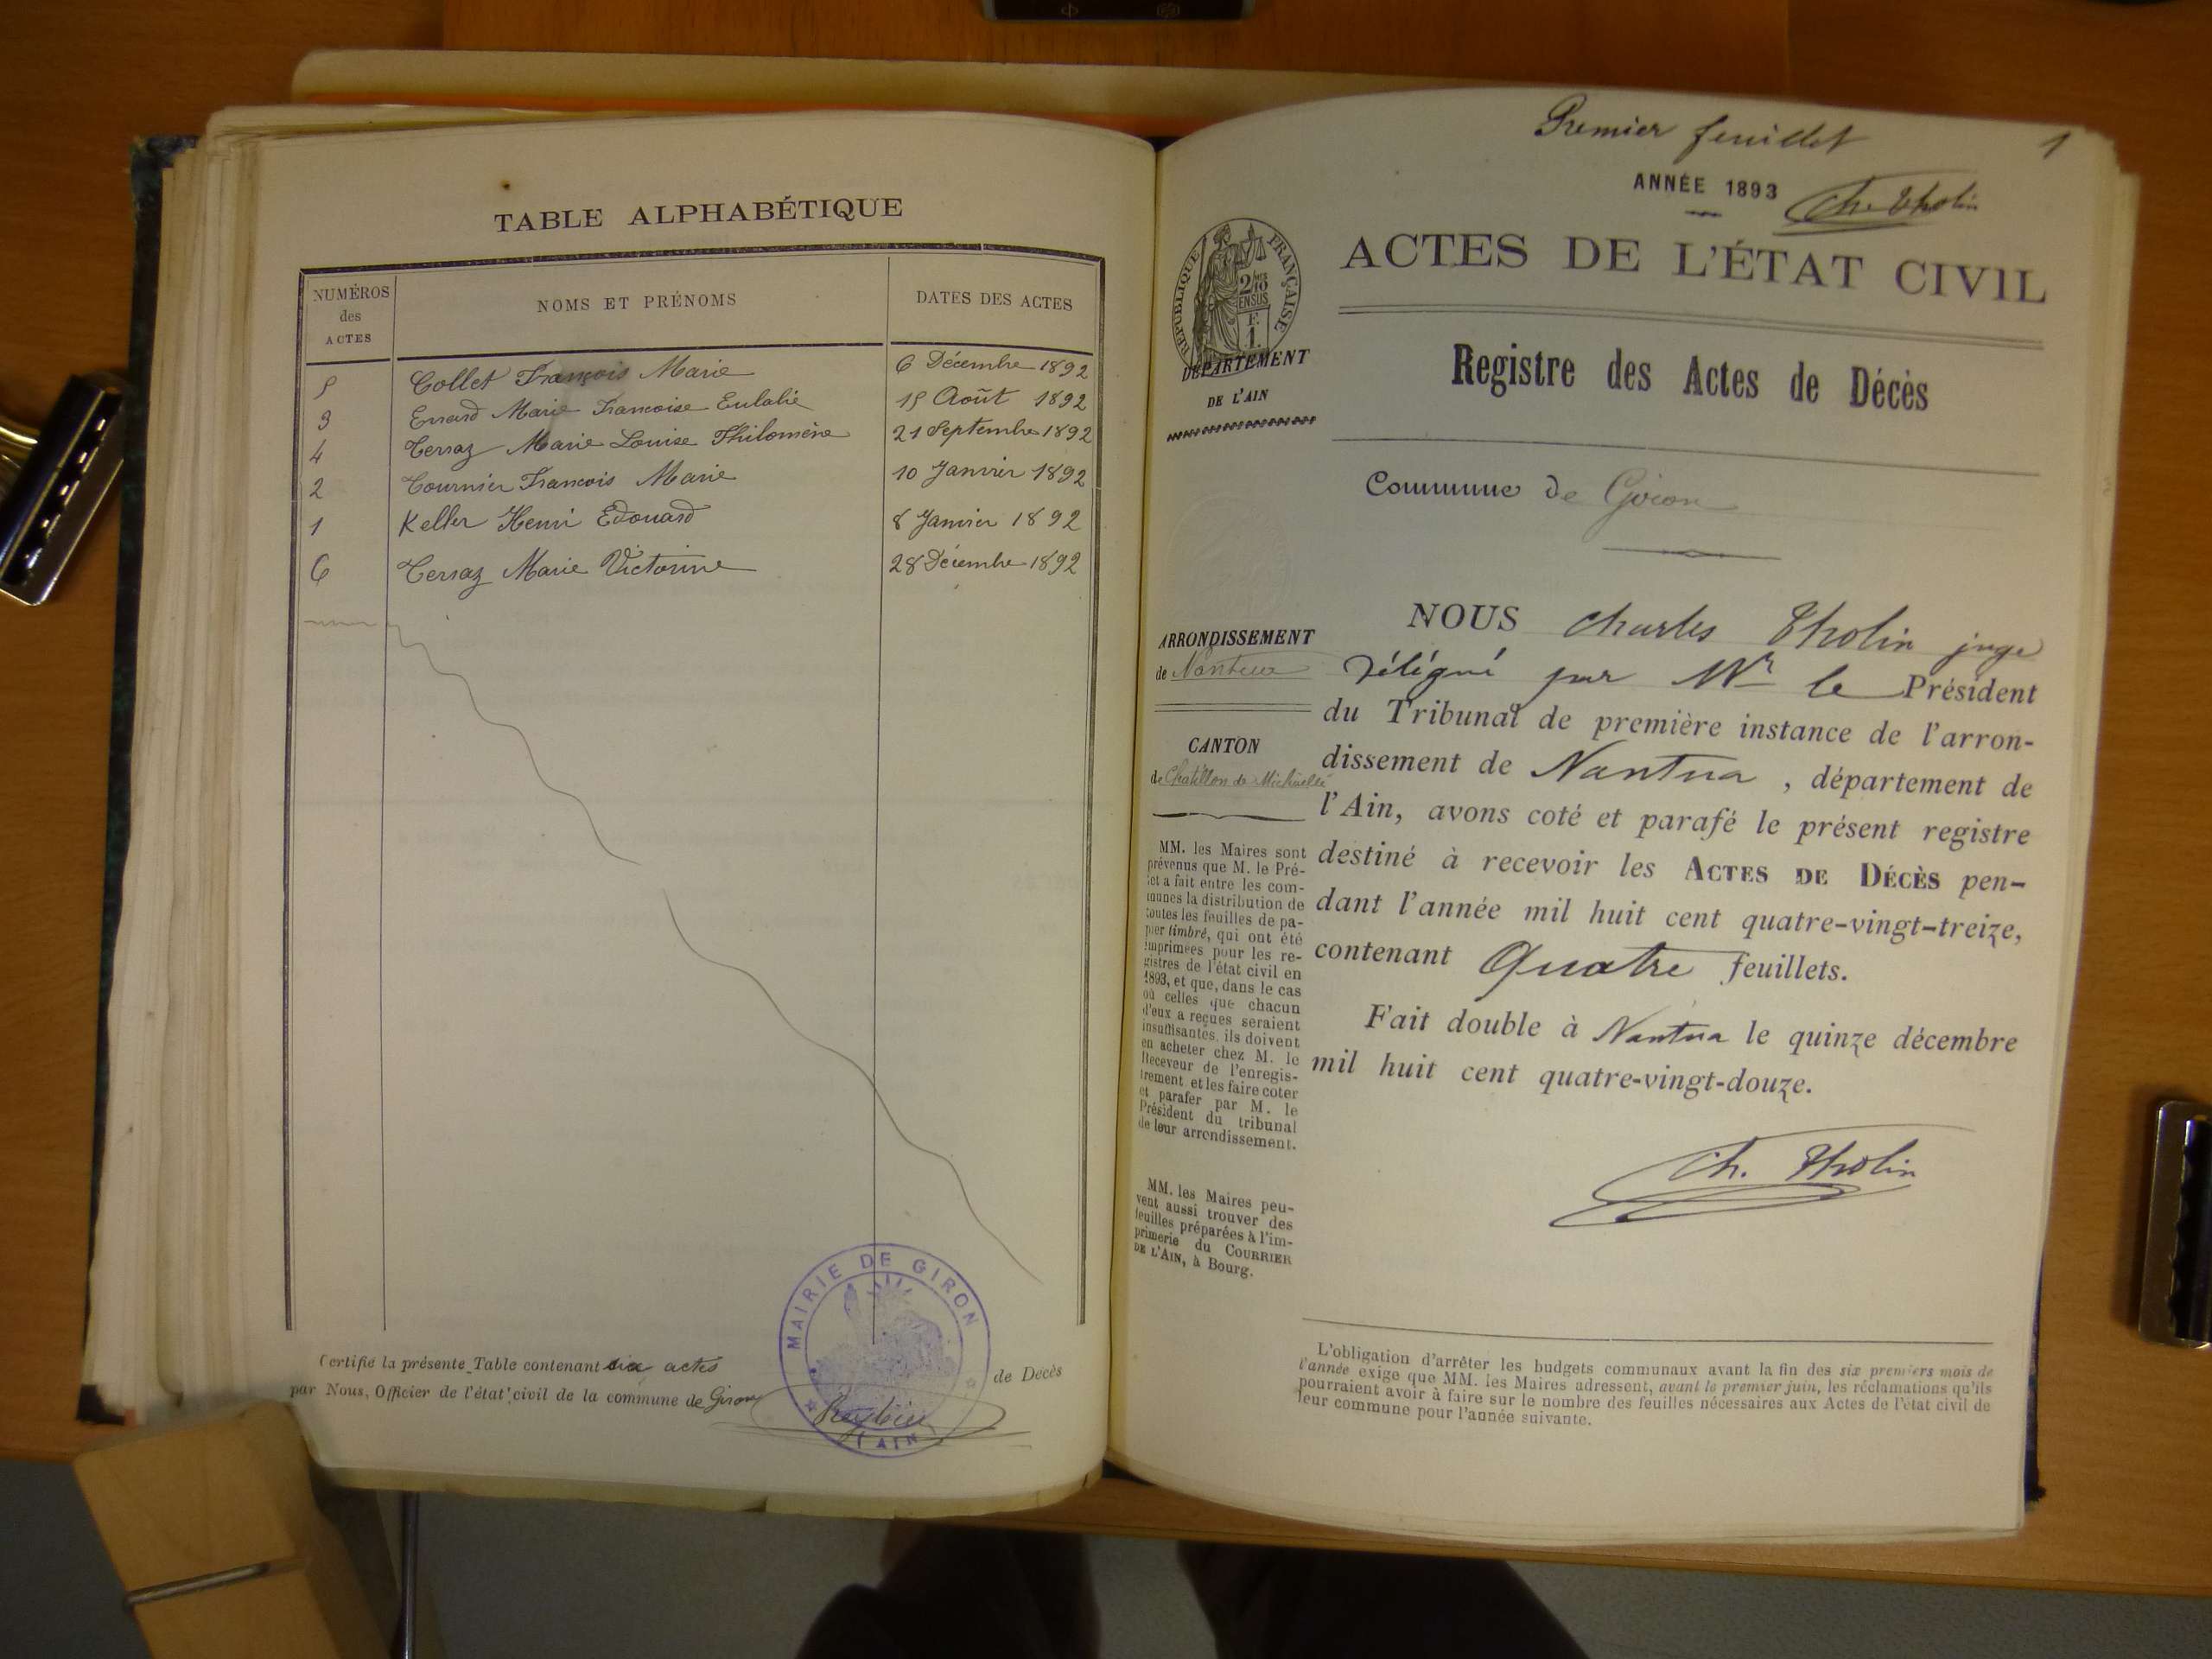 TABLE ALPHABÉTIQUE
NUMÉROS des ACTES
NOMS ET PRÉNOMS
DATES DES ACTES
5 Collet François Marie 6 Décembre 1892
3 Erard Marie Francoise Eulalie 15 Août 1892
4 Terraz Marie Louise Philomène 21 Septembre 1892
2 Tournier Francois Marie 10 Janvier 1892
1 Keller Henri Edouard 8 Janvier 1892
6 Terraz Marie Victorine 28 Décembre 1892
Certifié la présente Table contenant six actes de Décès
par Nous, Officier de l'état civil de la commune de Giron
MAIRIE DE GIRON
(AIN)
Premier feuillet
1
ANNÉE 1893
Ch. Tholin
RÉPUBLIQUE FRANÇAISE
ACTES DE L'ÉTAT CIVIL
DÉPARTEMENT
DE L'AIN
Registre des Actes de Décès
Commune de Giron
ARRONDISSEMENT
de Nantua
CANTON
de Chatillon de Michaille
MM. les Maires sont
prévenus que M. le Pré-
fet a fait entre les com-
munes la distribution de
toutes les feuilles de pa-
pier timbré, qui ont été
imprimées pour les re-
gistres de l'état civil en
1893, et que, dans le cas
où celles que chacun
d'eux a reçues seraient
insuffisantes, ils doivent
en acheter chez M. le
Receveur de l'enregis-
trement et les faire coter
et parafer par M. le
Président du tribunal
de leur arrondissement.
MM. les Maires peu-
vent aussi trouver des
feuilles préparées à l'im-
primerie du COURRIER
DE L'AIN, à Bourg.
NOUS Charles Tholin juge
délégué par Mr le Président
du Tribunal de première instance de l'arron-
dissement de Nantua, département de
l'Ain, avons coté et parafé le présent registre
destiné à recevoir les ACTES DE DÉCÈS pen-
dant l'année mil huit cent quatre-vingt-treize,
contenant Quatre feuillets.
Fait double à Nantua le quinze décembre
mil huit cent quatre-vingt-douze.
Ch. Tholin
L'obligation d'arrêter les budgets communaux avant la fin des six premiers mois de
l'année exige que MM. les Maires adressent, avant le premier juin, les réclamations qu'ils
pourraient avoir à faire sur le nombre des feuilles nécessaires aux Actes de l'état civil de
leur commune pour l'année suivante.